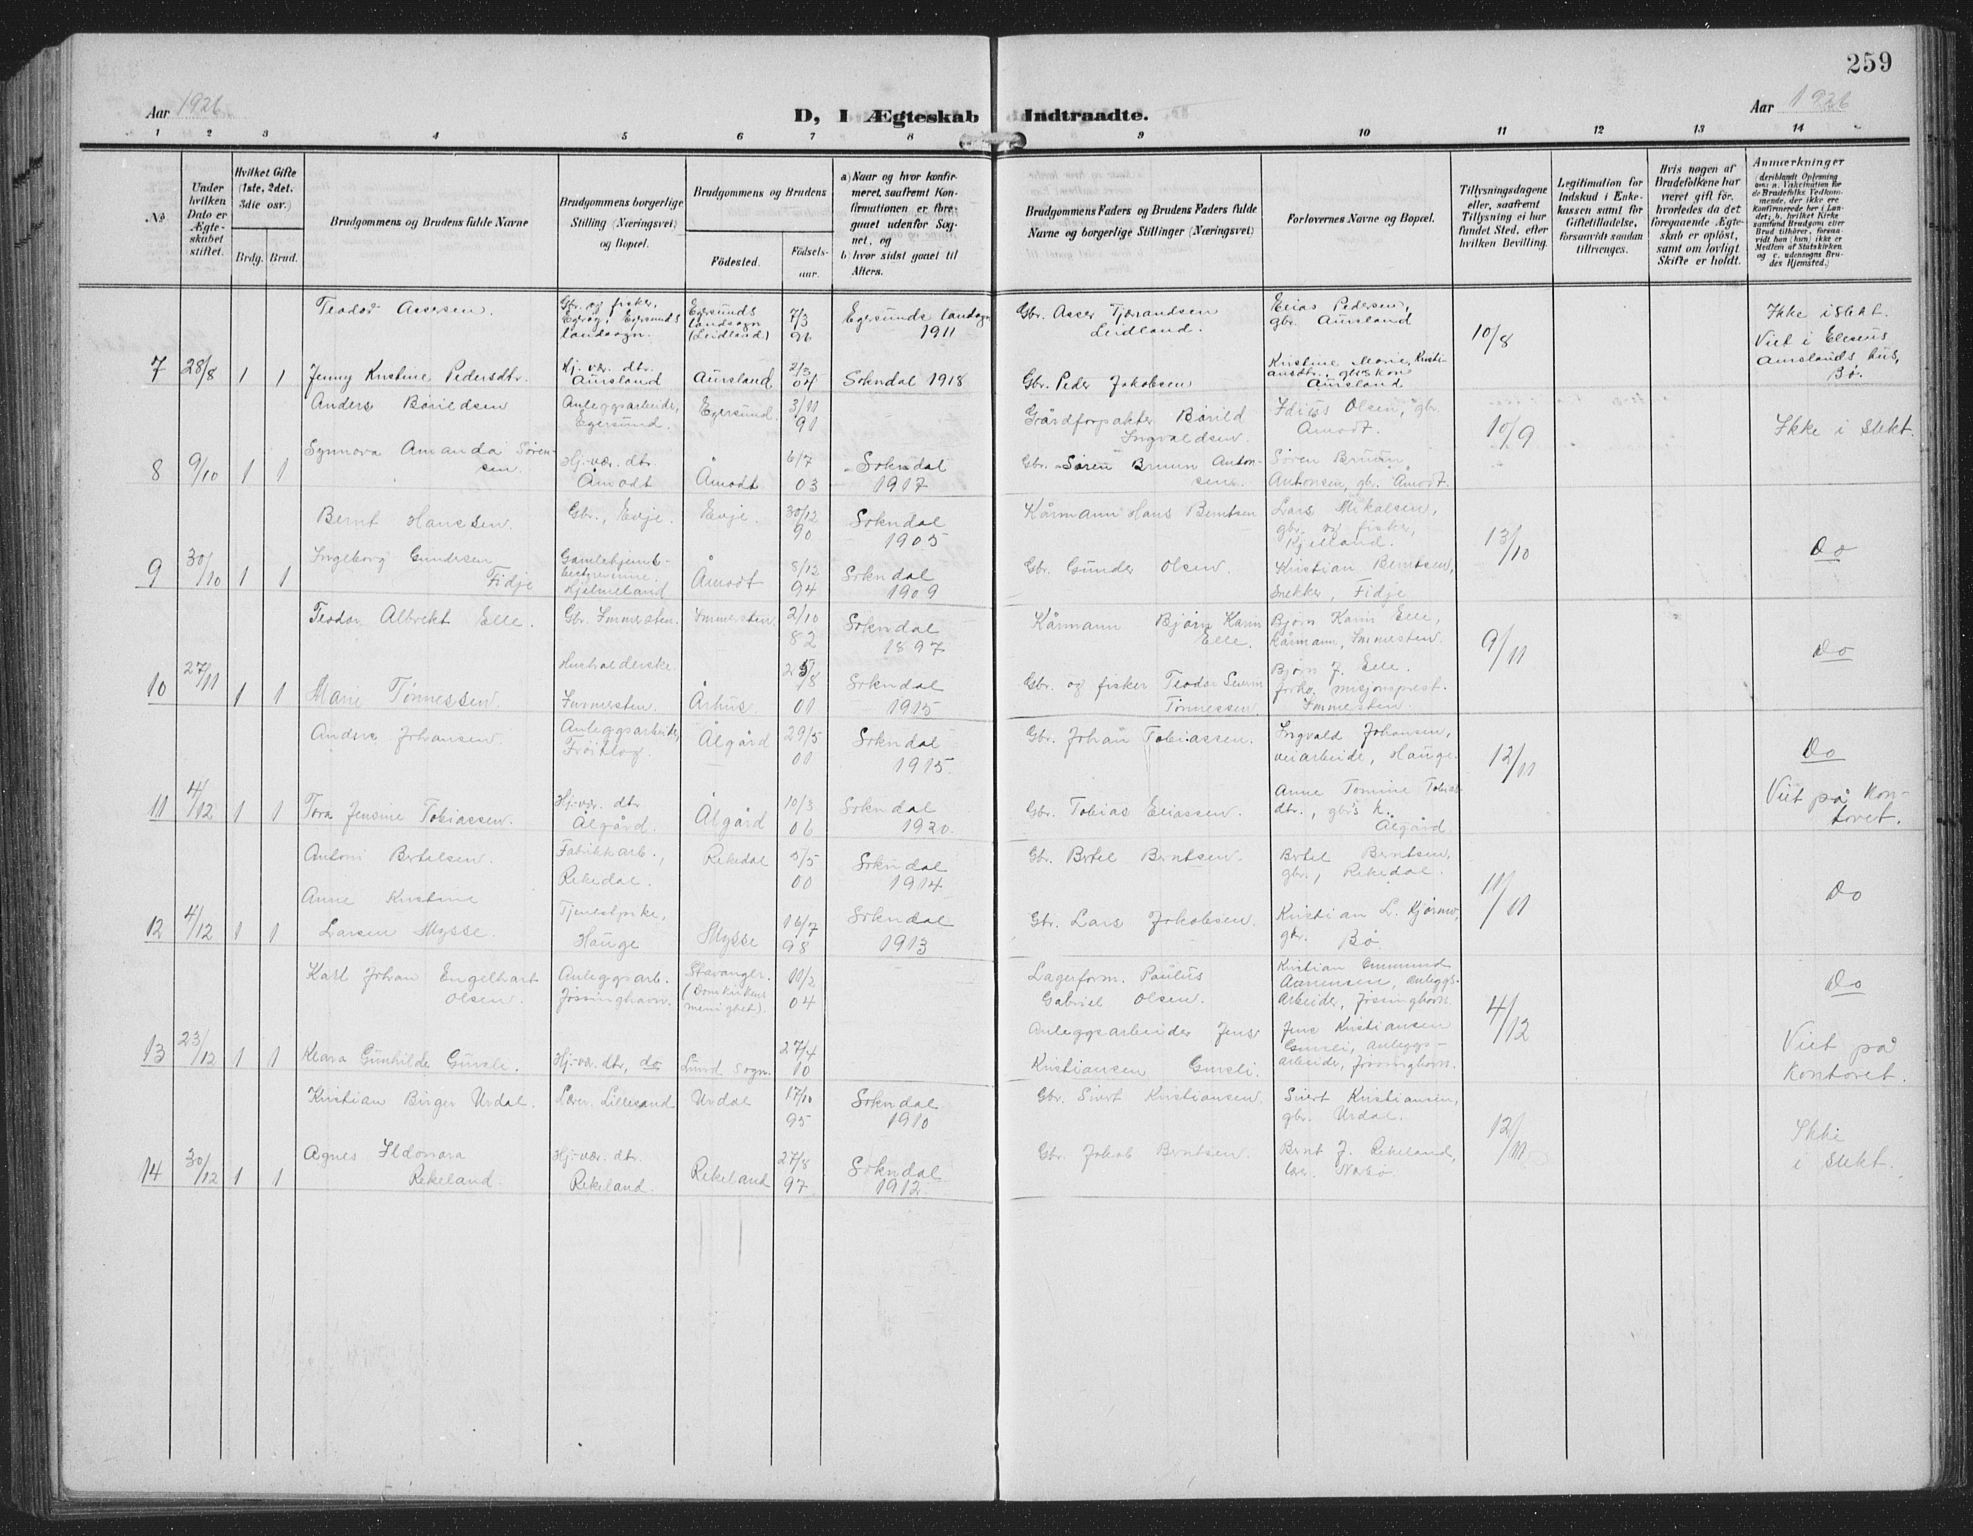 259
Aar 1926
D, I Ægteskab Indtraadte.
Aar 1926
1 2 3 4 5 6 7 8 9 10 11 12 13 14
№
Under hvilken Dato er Ægteskabet stiftet.
Hvilket Gifte (1ste, 2det, 3die osv.)
Brdg. Brud.
Brudgommens og Brudens fulde Navne
Brudgommens borgerlige Stilling (Næringsvei) og Bopæl.
Brudgommens og Brudens
Födested. Födselsaar.
a) Naar og hvor konfirmeret, saafremt Konfirmationen er foregaaet udenfor Sognet, og
b) hvor sidst gaaet til Alters.
Brudgommens Faders og Brudens Faders fulde Navne og borgerlige Stillinger (Næringsvei)
Forlovernes Navne og Bopæl.
Tillysningsdagene eller, saafremt Tillysning ei har fundet Sted, efter hvilken Bevilling.
Legitimation for Indskud i Enkekassen samt for Giftetilladelse, forsaavidt saadan tiltrænges.
Hvis nogen af Brudefolkene har været gift før, hvorledes da det foregaaende Ægteskab er oplöst, samt om lovligt Skifte er holdt.
Anmærkninger
Teodor Assersen. Gbr. og fisker, Egerøy, Egersunds landsogn. Egersunds landsogn (Leidland) 7/3 96 Egersunds landsogn 1911 Gbr. Asser Tjørandsen Leidland. Elias Pedersen, gbr. Aursland 10/8 Ikke i slekt. Viet i Eleseus Aurslands hus, Bø.
7 28/8 1 1 Jenny Kristine Pedersdtr. Hj. vær. dtr. Aursland Aursland 2/3 04 Sokndal 1918 Gbr. Peder Jakobsen Kristine Marie Kristiansdtr, gbrs kon Aursland
Anders Bårildsen Anleggsarbeider, Egersund. Egersund. 3/11 91 Gårdforpakter Bårild Ingvaldsen. Olsen, gbr. Åmodt. 10/9 Ikke i slekt.
8 9/10 1 1 Synnøva Amanda Sørensen. Hj.-vær. dtr. Åmodt Åmodt 6/7 03 Sokndal 1917 Gbr. Søren Bruun Antonsen. Søren Bruun Antonsen, gbr. Åmodt.
Bernt Hanssen Gbr., Evje. Evje. 30/12 90 Sokndal 1905 Kårmann Hans Berntsen Lars Mikalsen, gbr. og fisker, Kjelland. 13/10 Do
9 30/10 1 1 Ingeborg Gundersen Fidje Gamlehjemsbestyrerinne. Hjelmeland Åmodt 8/12 94 Sokndal 1909 Gbr. Gunder Olsen. Kristian Berntsen, snekker, Fidje
Teodor Albrekt Elle. Gbr. Immersten. Immersten. 2/10 82 Sokndal 1897 Kårmann Bjørn Karin Elle. Bjørn Karin Elle, kårmann, Immersten. 9/11 Do
10 27/11 1 1 Marie Tønnessen. Husholderske Immersten. Århus. 25/8 01 Sokndal 1915 Gbr. og fisker Teodor Severin Tønnessen. Bjørn J. Elle. forhv. misjonsprest. Immersten.
Anders Johansen. Anleggsarbeider, Frøitlog Ålgård 29/5 01 Sokndal 1915. Gbr. Johan Tobiassen. Ingvald Johansen, veiarbeider, Hauge. 12/11 Do
11 4/12 1 1 Tora Jensine Tobiassen. Hj.-vær. dtr Ålgård. Ålgård 10/3 06 Sokndal 1920. Gbr. Tobias Eliassen. Anne Tomine Tobiasdtr., gbrs k. Ålgård Viet på kontoret.
Antoni Bertelsen. Fabrikkarb., Rekedal. Rekedal 5/5 00 Sokndal 1914 Gbr. Bertel Berntsen. Bertel Berntsen, gbr., Rekedal. 11/11 Do
12 4/12 1 1 Anne Kristine Larsen Mysse. Tjenestpike, Hauge Mysse 16/7 98 Sokndal 1913 Gbr. Lars Jakobsen. Kristian L. gbr. Bø
Karl Johan Engelhart Olsen. Anleggsarb. Jøssinghavn. Stavanger. (Domkirkens menighet). 11/2 04 Lagerform. Paulus Gabriel Olsen. Kristian Emmund Aanensen, anleggsarbeider, Jøssinghavn. 4/12 Do
13 23/12 1 1 Klara Gunhilde Gursli. Hj.-vær. dtr, do Lund sogn. 27/4 10 Anleggsarbeider Jens Kristiansen Gursli. Jens Kristiansen Gursli, anleggsarbeider, Jøssinghavn. Viet på kontoret.
Kristian Birger Urdal. Lærer. Lillesand Urdal 17/10 95 Sokndal 1910 Gbr. Sivert Kristiansen. Sivert Kristiansen, gbr. Urdal. 12/11 Ikke i slekt.
14 30/12 1 1 Agnes Ildonara Rekeland. Hj.-vær. dtr. Rekeland. Rekeland 27/8 97 Sokndal 1912. Gbr. Jakob Berntsen. Bernt J. Rekeland, lær. Nærbø.